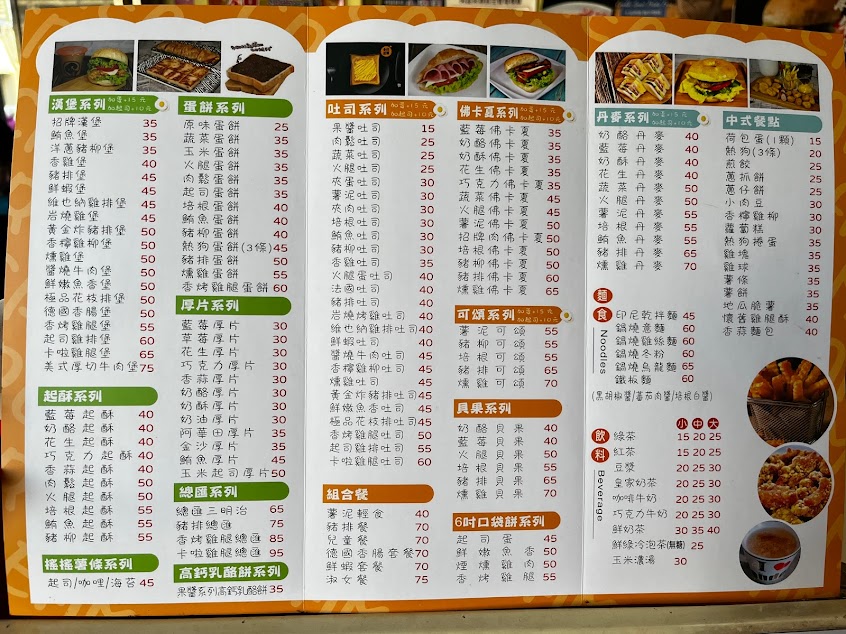 漢堡系列 加蛋+15元 加起司+10元
招牌漢堡 35
鮪魚堡 35
洋蔥豬柳堡 35
香雞堡 40
豬排堡 45
鮮蝦堡 45
維也納雞排堡 45
岩燒雞堡 45
黃金炸豬排堡 50
香檸雞柳堡 50
燻雞堡 50
醬燒牛肉堡 50
鮮嫩魚香堡 50
極品花枝排堡 50
德國香腸堡 50
香烤雞腿堡 55
起司雞排堡 60
卡啦雞腿堡 65
美式厚切牛肉堡 75
起酥系列
藍莓起酥 40
奶酪起酥 40
花生起酥 40
巧克力起酥 40
香蒜起酥 40
肉鬆起酥 50
火腿起酥 50
培根起酥 55
鮪魚起酥 55
豬柳起酥 55
搖搖薯條系列
起司/咖哩/海苔 45
蛋餅系列
原味蛋餅 25
蔬菜蛋餅 35
玉米蛋餅 35
火腿蛋餅 35
肉鬆蛋餅 35
起司蛋餅 35
培根蛋餅 40
鮪魚蛋餅 40
豬柳蛋餅 40
熱狗蛋餅(3條) 45
豬排蛋餅 50
燻雞蛋餅 55
香烤雞腿蛋餅 60
厚片系列
藍莓厚片 30
草莓厚片 30
花生厚片 30
巧克力厚片 30
香蒜厚片 30
奶酪厚片 30
奶酥厚片 30
奶油厚片 30
阿華田厚片 35
金沙厚片 35
鮪魚厚片 45
玉米起司厚片 50
總匯系列
總匯三明治 65
豬排總匯 75
香烤雞腿總匯 85
卡啦雞腿總匯 95
高鈣乳酪餅系列
果醬系列高鈣乳酪餅 35
吐司系列 加蛋+15元 加起司+10元
果醬吐司 15
肉鬆吐司 25
蔬菜吐司 25
火腿吐司 25
夾蛋吐司 30
薯泥吐司 30
夾肉吐司 30
培根吐司 30
鮪魚吐司 30
豬柳吐司 30
香雞吐司 35
火腿蛋吐司 40
法國吐司 40
豬排吐司 40
岩燒烤雞吐司 40
維也納雞排吐司 40
鮮蝦吐司 40
醬燒牛肉吐司 45
香檸雞柳吐司 45
燻雞吐司 45
黃金炸豬排吐司 45
鮮嫩魚香吐司 45
極品花枝排吐司 45
香烤雞腿吐司 50
起司雞排吐司 55
卡啦雞腿吐司 60
組合餐
薯泥輕食 40
豬排餐 70
兒童餐 70
德國香腸套餐 70
鮮蝦套餐 70
淑女餐 75
佛卡夏系列 加蛋+15元 加起司+10元
藍莓佛卡夏 35
奶酪佛卡夏 35
奶酥佛卡夏 35
花生佛卡夏 35
巧克力佛卡夏 35
蔬菜佛卡夏 45
火腿佛卡夏 45
薯泥佛卡夏 50
招牌肉佛卡夏 50
培根佛卡夏 50
鮪魚佛卡夏 50
豬柳佛卡夏 60
豬排佛卡夏 60
燻雞佛卡夏 65
可頌系列 加蛋+15元 加起司+10元
薯泥可頌 55
豬柳可頌 55
培根可頌 55
豬排可頌 65
燻雞可頌 70
貝果系列
奶酪貝果 40
藍莓貝果 40
火腿貝果 50
培根貝果 55
豬排貝果 65
燻雞貝果 70
6吋口袋餅系列
起司蛋 45
鮮嫩魚香 50
煙燻雞肉 50
香烤雞腿 55
丹麥系列 加蛋+15元 加起司+10元
奶酪丹麥 40
藍莓丹麥 40
奶酥丹麥 40
花生丹麥 40
蔬菜丹麥 50
火腿丹麥 50
薯泥丹麥 55
培根丹麥 55
鮪魚丹麥 55
豬排丹麥 65
燻雞丹麥 70
麵食 Noodles
印尼乾拌麵 45
鍋燒意麵 60
鍋燒雞絲麵 60
鍋燒冬粉 60
鍋燒烏龍麵 65
鐵板麵 60
(黑胡椒醬/蕃茄肉醬/培根白醬)
飲料 Beverage
小 中 大
綠茶 15 20 25
紅茶 15 20 25
豆漿 20 25 30
皇家奶茶 20 25 30
咖啡牛奶 20 25 30
巧克力牛奶 20 25 30
鮮奶茶 30 35 40
鮮綠冷泡茶(無糖) 25
玉米濃湯 30
中式餐點
荷包蛋(1顆) 15
熱狗(3條) 20
煎餃 25
蔥抓餅 25
蔥仔餅 25
小肉豆 30
香檸雞柳 30
蘿蔔糕 30
熱狗捲蛋 35
雞塊 35
雞球 35
薯條 35
薯餅 35
地瓜脆薯 35
懷舊雞腿酥 40
香蒜麵包 40